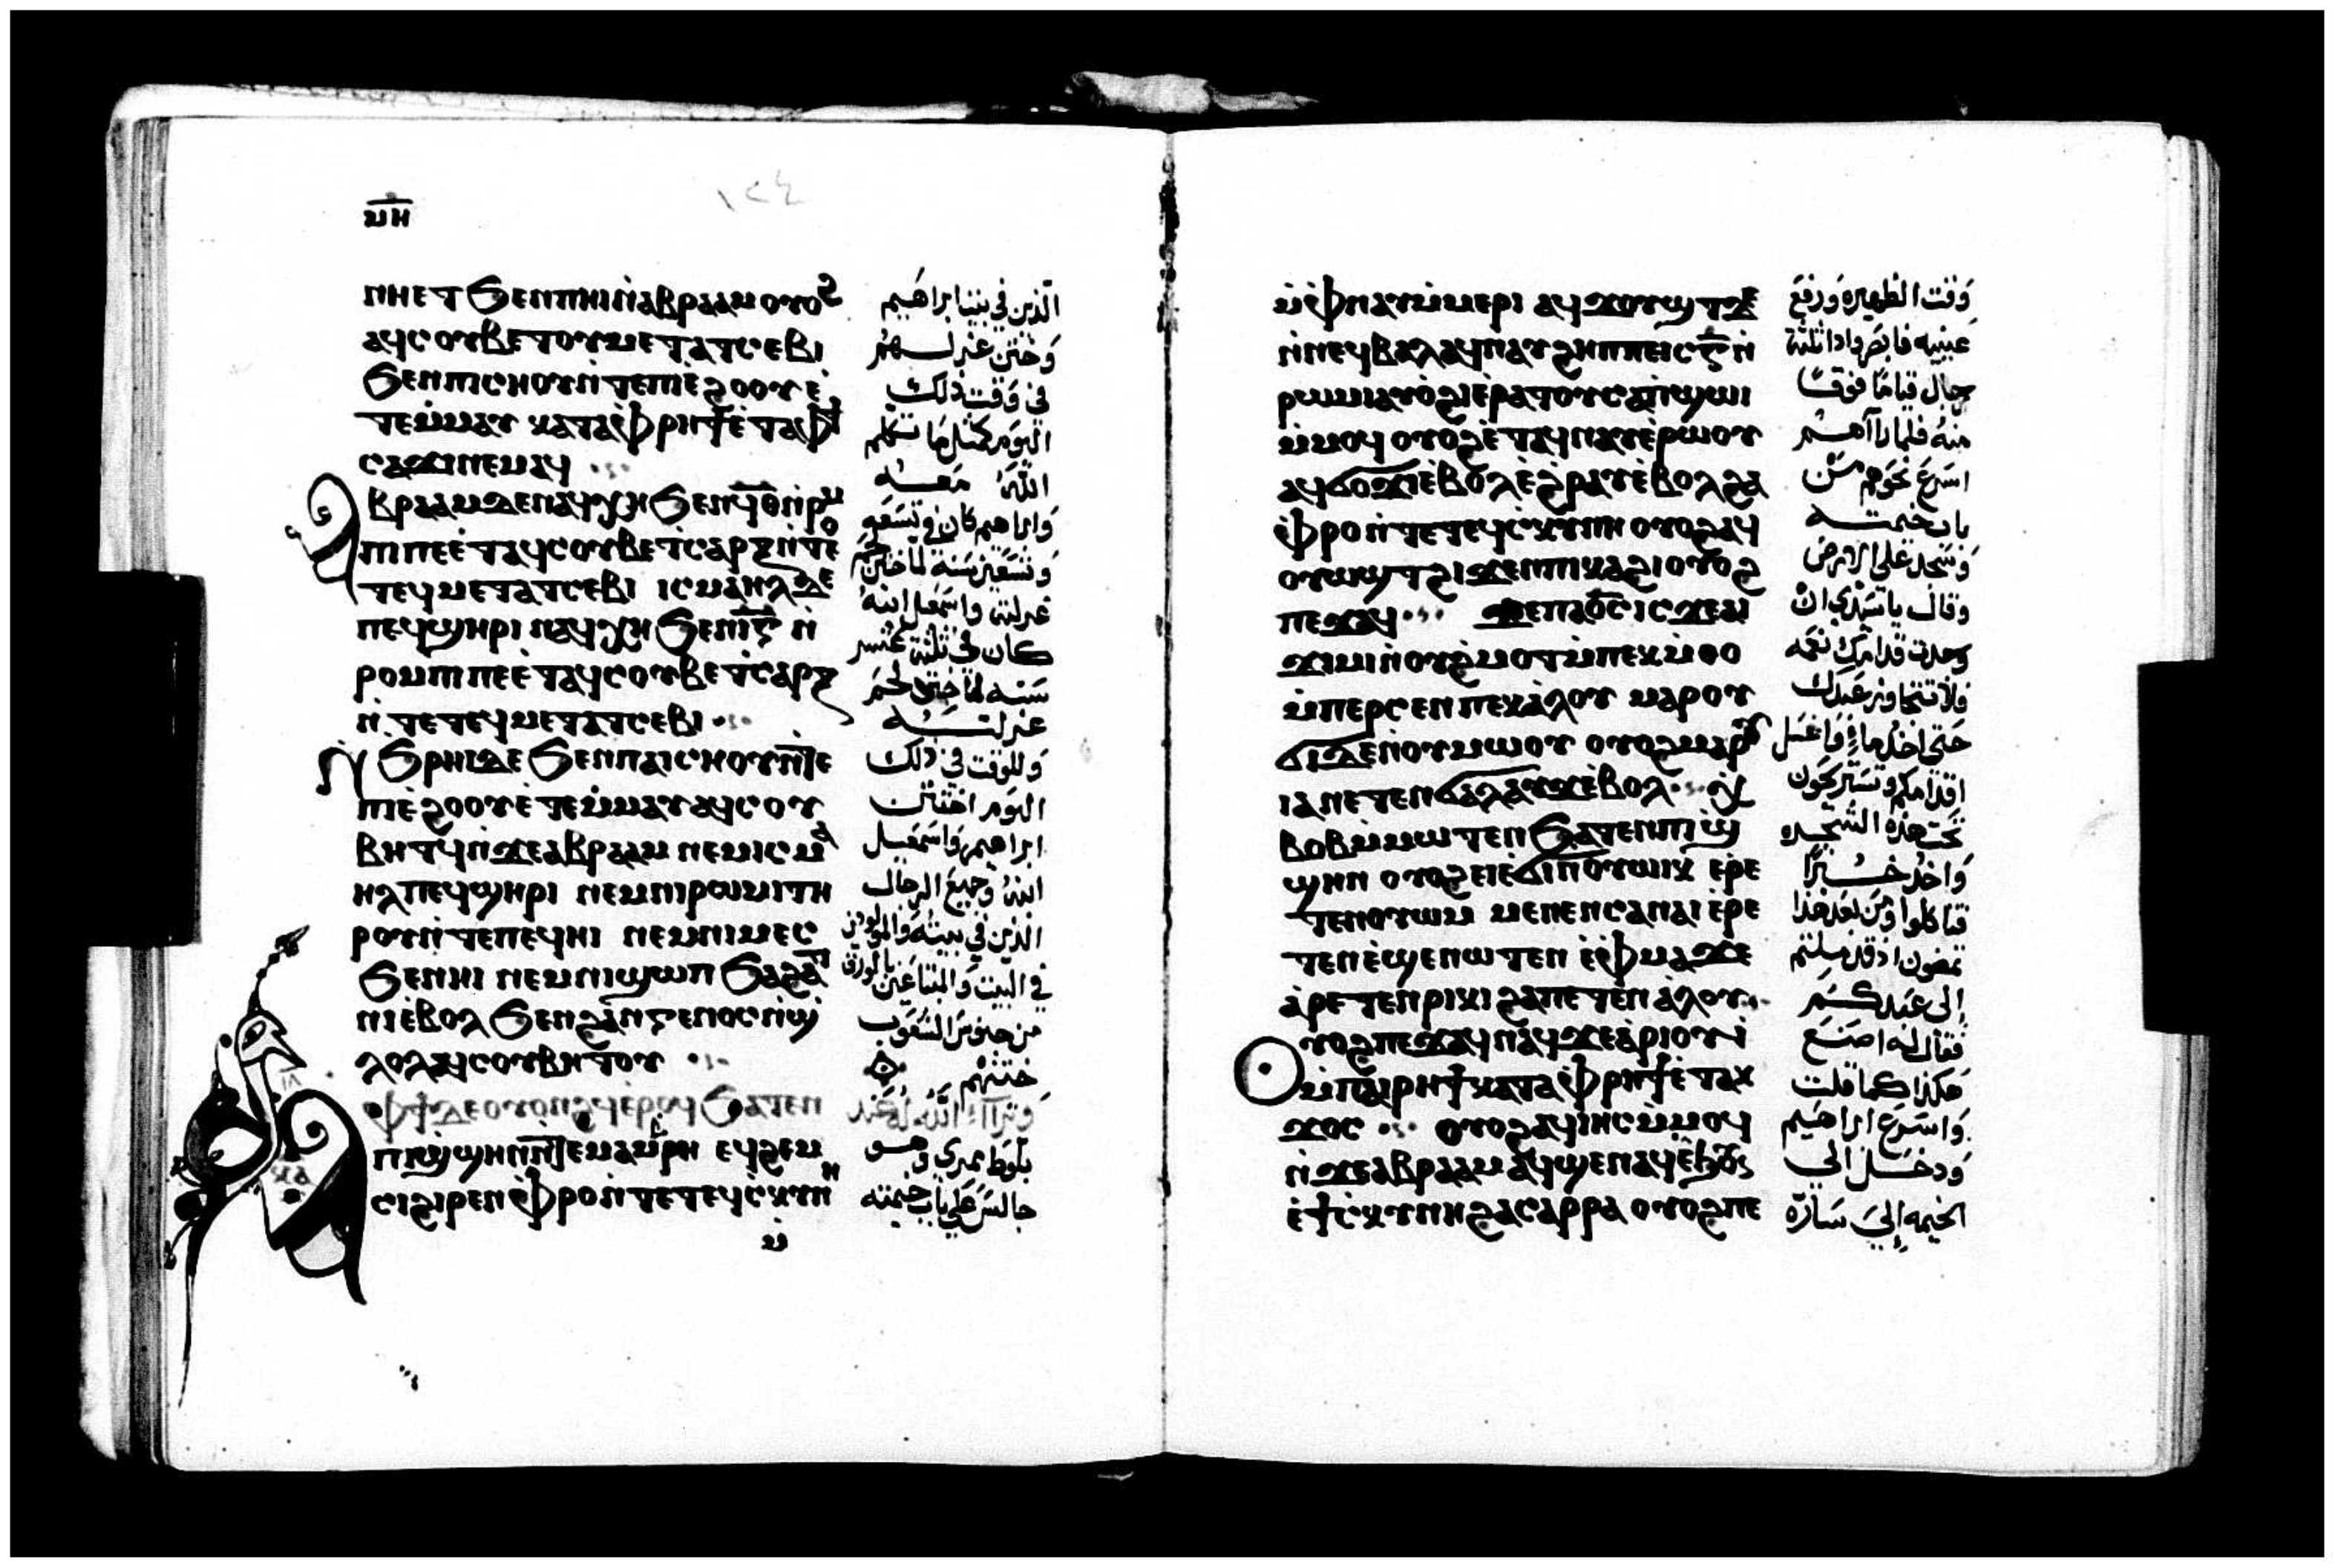 ⲙⲏ
١٢٤
ⲛⲏⲉⲧ ϧⲉⲛ ⲡⲏⲓ ⲛ̀ⲁⲃⲣⲁⲁⲙ ⲟⲩⲟϩ
ⲁϥⲥⲟⲩⲃⲉ ⲧⲟⲩⲙⲉⲧⲁⲧⲥⲉⲃⲓ
ϧⲉⲛ ⲡⲓⲥⲏⲟⲩ ⲛ̀ⲧⲉ ⲡⲓⲉ̀ϩⲟⲟⲩ ⲉ̀
ⲧⲉⲙ̀ⲙⲁⲩ ⲕⲁⲧⲁ ⲫ̀ⲣⲏϯ ⲉ̀ⲧⲁⲫϯ
ⲥⲁϫⲓ ⲛⲉⲙⲁϥ
ⲁⲃⲣⲁⲁⲙ ⲇⲉ ⲛⲁϥⲭⲏ ϧⲉⲛ ϥ̅ⲑ̅ ⲛ̀ⲣⲟⲙ
ⲡⲓ ⲡⲉ ⲉ̀ⲧⲁϥⲥⲟⲩⲃⲉ ⲧⲥⲁⲣⲝ ⲛ̀ⲧⲉ
ⲧⲉϥⲙⲉⲧⲁⲧⲥⲉⲃⲓ ⲓⲥⲙⲁⲏⲗ ⲇⲉ
ⲡⲉϥϣⲏⲣⲓ ⲛⲁϥⲭⲏ ϧⲉⲛ ⲓ̅ⲅ̅ ⲛ̀
ⲣⲟⲙⲡⲓ ⲡⲉ ⲉ̀ⲧⲁϥⲥⲟⲩⲃⲉ ⲧⲥⲁⲣⲝ
ⲛ̀ⲧⲉ ⲧⲉϥⲙⲉⲧⲁⲧⲥⲉⲃⲓ
ⲛ̀ϧⲣⲏⲓ ⲇⲉ ϧⲉⲛ ⲡⲁⲓⲥⲏⲟⲩ ⲛ̀ⲧⲉ
ⲡⲓⲉ̀ϩⲟⲟⲩ ⲉ̀ⲧⲉⲙ̀ⲙⲁⲩ ⲁϥⲥⲟⲩ
ⲃⲏⲧϥ ⲛ̀ϫⲉ ⲁⲃⲣⲁⲁⲙ ⲛⲉⲙ ⲓⲥⲙⲁ
ⲏⲗ ⲡⲉϥϣⲏⲣⲓ ⲛⲉⲙ ⲛⲓⲣⲱⲙⲓ ⲧⲏ
ⲣⲟⲩ ⲛ̀ⲧⲉ ⲡⲉϥⲏⲓ ⲛⲉⲙ ⲛⲓⲙⲉⲥ
ϧⲉⲛ ⲏⲓ ⲛⲉⲙ ⲛⲓϣⲱⲡ ϧⲁ ϩⲁⲧ
ⲛⲓⲉ̀ⲃⲟⲗ ϧⲉⲛ ϩⲁⲛⲅⲉⲛⲟⲥ ⲛ̀ϣ
ⲗⲟⲗ ⲁϥⲥⲟⲩⲃⲏⲧⲟⲩ
ⲫϯ ⲇⲉ ⲟⲩⲟⲛϩϥ ⲉ̀ⲣⲟϥ ϧⲁⲧⲉⲛ
ⲡⲓϣ̀ϣⲏⲛ ⲛ̀ⲧⲉ ⲙⲁⲙⲃⲣⲏ ⲉϥϩⲉⲙ
ⲥⲓ ϩⲓⲣⲉⲛ ⲫ̀ⲣⲟ ⲛ̀ⲧⲉ ⲧⲉϥⲥ̀ⲕⲩⲛⲏ
ⲙ̀
الذين في بيت ابراهيم
وختن غرلتهم
في وقت ذلك
اليوم كمثل ما تكلم
الله معه
وابراهيم كان في تسعه
وتسعين سنه لما ختن
غرلته واسمعيل ابنه
كان في ثلثة عشر
سنه لما ختن لحم
غرلته
وللوقت في ذلك
اليوم اختتن
ابراهيم واسمعيل
ابنه وجميع الرجال
الذين في بيته والمولودين
في البيت والمبتاعين بالورق
من جنوس الشعوب
ختنهم
وترآا الله له عند
بلوط ممري وهو
جالس على باب خيمته
ⲙ̀ⲫ̀ⲛⲁⲩ ⲙ̀ⲙⲉⲣⲓ ⲁϥϫⲟⲩϣⲧ ⲇⲉ
ⲛ̀ⲛⲉϥⲃⲁⲗ ⲁϥⲛⲁⲩ ϩⲏⲡⲡⲉ ⲓⲥ ⲅ̅ ⲛ̀
ⲣⲱⲙⲓ ⲁⲩⲟ̀ϩⲓ ⲉ̀ⲣⲁⲧⲟⲩ ⲥⲁⲡ̀ϣⲱⲓ
ⲙ̀ⲙⲟϥ ⲟⲩⲟϩ ⲉ̀ⲧⲁϥⲛⲁⲩ ⲉ̀ⲣⲱⲟⲩ
ⲁϥϭⲟϫⲓ ⲉ̀ⲃⲟⲗ ⲉ̀ϩⲣⲁⲩ ⲉ̀ⲃⲟⲗ ϩⲁ
ⲫ̀ⲣⲟ ⲛ̀ⲧⲉ ⲧⲉϥⲥ̀ⲕⲩⲛⲏ ⲟⲩⲟϩ ⲁϥ
ⲟⲩⲱϣⲧ ϩⲓϫⲉⲛ ⲡⲓⲕⲁϩⲓ ⲟⲩⲟϩ
ⲡⲉϫⲁϥ ϫⲉ ⲡⲁⲟ̅ⲥ̅ ⲓⲥϫⲉ ⲁⲓ
ϫⲓⲙⲓ ⲛ̀ⲟⲩϩ̀ⲙⲟⲧ ⲙ̀ⲡⲉⲕⲙ̀ⲑⲟ
ⲙ̀ⲡⲉⲣⲥⲉⲛ ⲡⲉⲕⲁ̀ⲗⲟⲩ ⲙⲁⲣⲟⲩ
ϭⲓ ⲇⲉ ⲛ̀ⲟⲩⲙⲱⲟⲩ ⲟⲩⲟϩ ⲙⲁⲣⲟⲩ
ⲓⲁ ⲛⲉⲧⲉⲛϭⲁⲗⲁⲩϫ ⲉ̀ⲃⲟⲗ ⲭ
ⲃⲟⲃ ⲙ̀ⲙⲱⲧⲉⲛ ϧⲁⲧⲉⲛ ⲡⲓϣ̀
ϣⲏⲛ ⲟⲩⲟϩ ⲉⲓⲉ̀ϭⲓ ⲛ̀ⲟⲩⲱⲓⲕ ⲉⲣⲉ
ⲧⲉⲛⲟⲩⲱⲙ ⲙⲉⲛⲉⲛⲥⲁ ⲛⲁⲓ ⲉ̀ⲣⲉ
ⲧⲉⲛⲉ̀ϣⲉⲛⲱⲧⲉⲛ ⲉ̀ⲫ̀ⲙⲁ ϫⲉ
ⲁ̀ⲣⲉⲧⲉⲛⲣⲓⲕⲓ ϩⲁ ⲡⲉⲧⲉⲛⲁ̀ⲗⲟⲩ
ⲟⲩⲟϩ ⲡⲉϫⲁϥ ⲛⲁϥ ϫⲉ ⲁⲣⲓⲟⲩⲓ̀
ⲙ̀ⲡⲁⲓⲣⲏϯ ⲕⲁⲧⲁ ⲫ̀ⲣⲏϯ ⲉ̀ⲧⲁⲕ
ϫⲟⲥ ⲟⲩⲟϩ ⲁϥⲓⲏⲥ ⲙ̀ⲙⲟϥ
ⲛ̀ϫⲉ ⲁⲃⲣⲁⲁⲙ ⲁϥϣⲉⲛⲁϥ ⲉ̀ϧⲟⲩⲛ
ⲉ̀ϯⲥ̀ⲕⲩⲛⲏ ϩⲁ ⲥⲁⲣⲣⲁ ⲟⲩⲟϩ ⲡⲉ
وقت الظهيره ورفع
عينيه فابصر واذا ثلثة
رجال قياما فوقا
منه فلما رااهم
اسرع نحوهم من
باب خيمته
وسجد على الارض
وقال يا سيدي ان
وجدت قدامك نعمه
فلا تتجاوز عبدك
حتى اخذ ماء واغسل
اقدامكم وتستريحون
تحت هذه الشجره
واخذ خبزا
فتاكلوا ومن بعد هذا
تمضون اذ قد ملتم
إلى عبدكم
فقال له اصنع
هكذا كما قلت
واسرع ابراهيم
ودخل الي
الخيمه إلى ساره